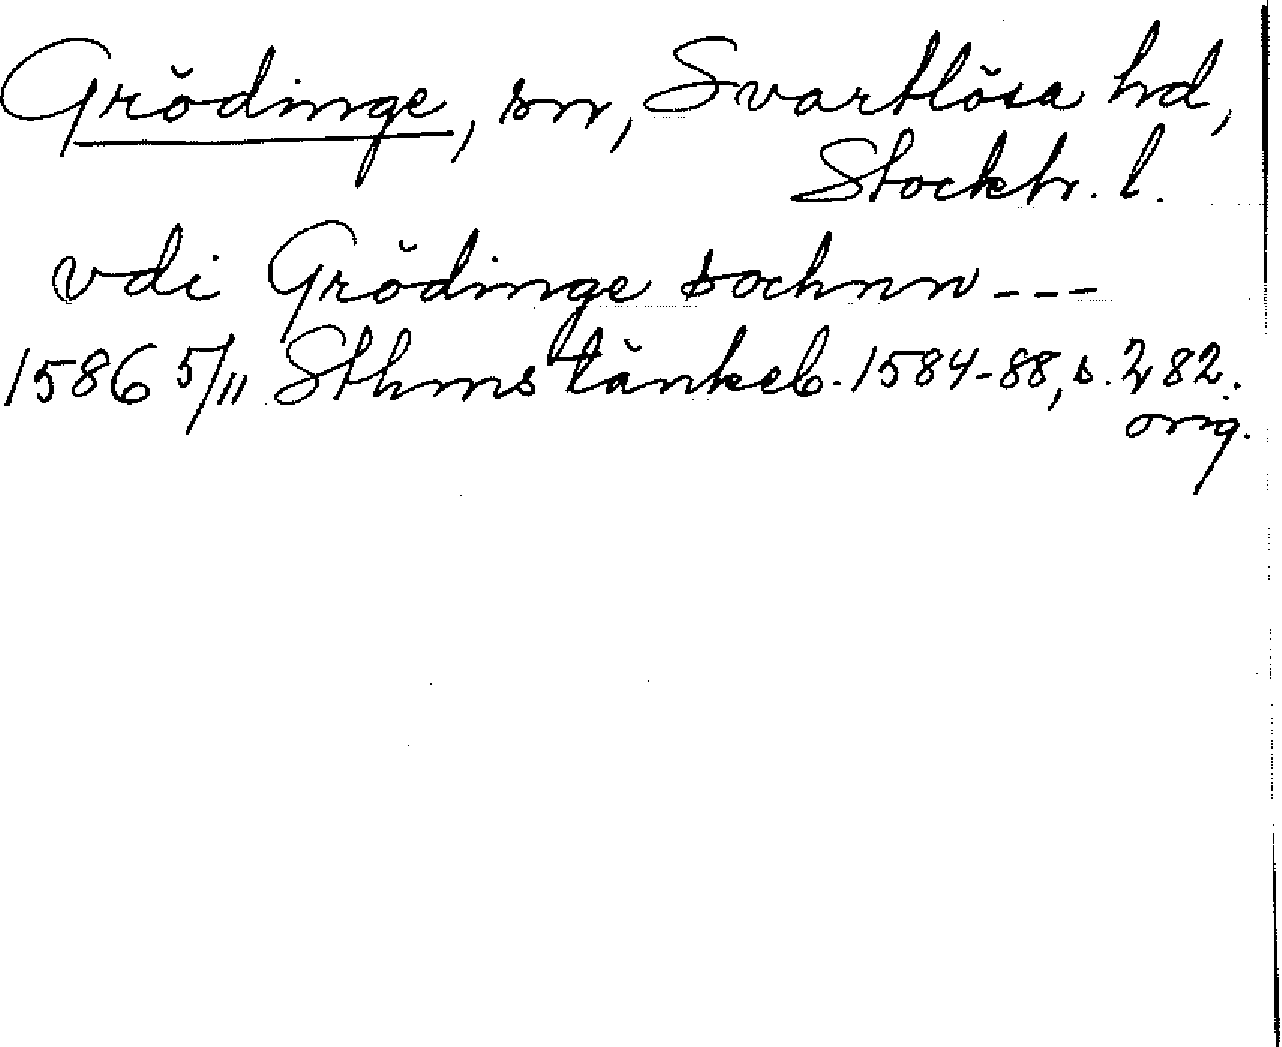 Grödinge, sn, Svartlösa hd,
Stockh. l.
vdi Grödinge sochnn ---
1586 5/11 Sthms tänkeb. 1584-88, s. 282.
orig.